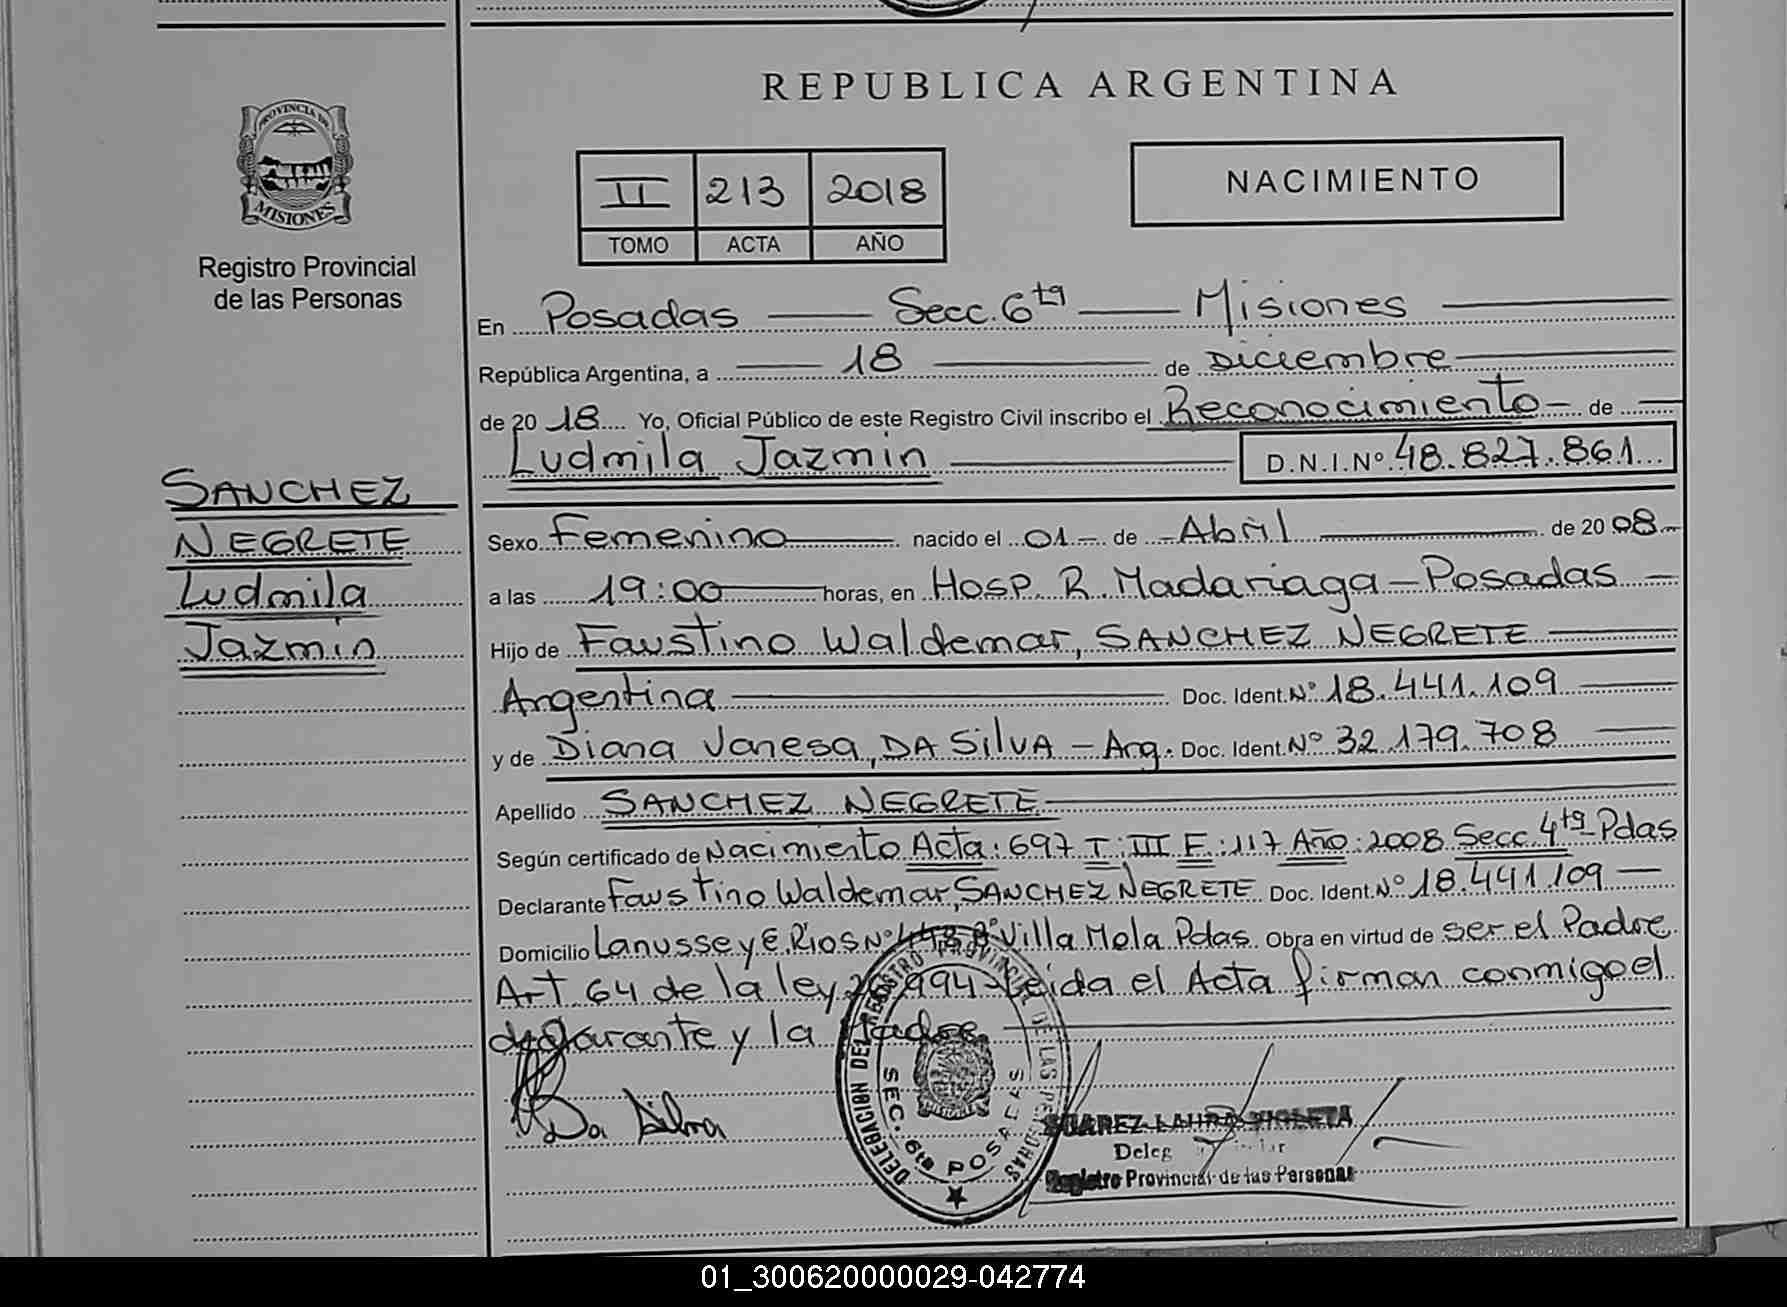 REPUBLICA ARGENTINA
PROVINCIA DE
MISIONES
Registro Provincial
de las Personas
II 213 2018
TOMO ACTA AÑO
NACIMIENTO
En Posadas — Secc. 6ta — Misiones
República Argentina, a — 18 — de Diciembre
de 20 18 Yo, Oficial Público de este Registro Civil inscribo el Reconocimiento - de
Ludmila Jazmin — D.N.I. Nº 48.827.861
SANCHEZ
NEGRETE
Ludmila
Jazmin
Sexo Femenino nacido el 01 - de - Abril de 20 08 -
a las 19:00 horas, en Hosp. R. Madariaga - Posadas -
Hijo de Faustino Waldemar, SANCHEZ NEGRETE
Argentina — Doc. Ident. Nº 18.441.109
y de Diana Vanesa, DA SilVA - Arg. Doc. Ident. Nº 32.179.708
Apellido SANCHEZ NEGRETE
Según certificado de Nacimiento Acta: 697 T: III F: 117 Año: 2008 Secc. 4ta Pdas
Declarante Faustino Waldemar, SANCHEZ NEGRETE Doc. Ident. Nº 18.441.109
Domicilio Lanusse y E. Rios Nº 448 Bº Villa Mola Pdas. Obra en virtud de ser el Padre
Art. 64 de la ley 26.994 - Leida el Acta firman conmigo el
declarante y la Madre
Da Silva
DELEGACION DEL REGISTRO PROVINCIAL DE LAS PERSONAS
SEC. 6ta POSADAS
SUAREZ LAURA VIOLETA
Registro Provincial de las Personas
01_300620000029-042774